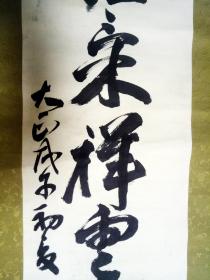 采祥雲
大正戊午初夏